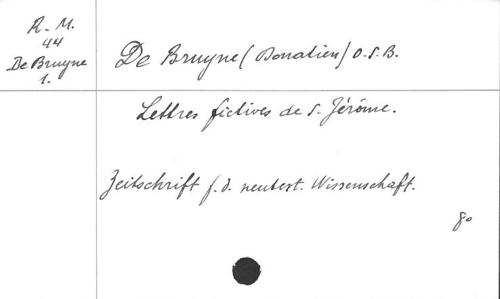 R. M.
44
De Bruyne
1.
De Bruyne (Donatien) O.S.B.
Lettres fictives de S. Jérôme.
Zeitschrift f. d. neutest. Wissenschaft.
8o